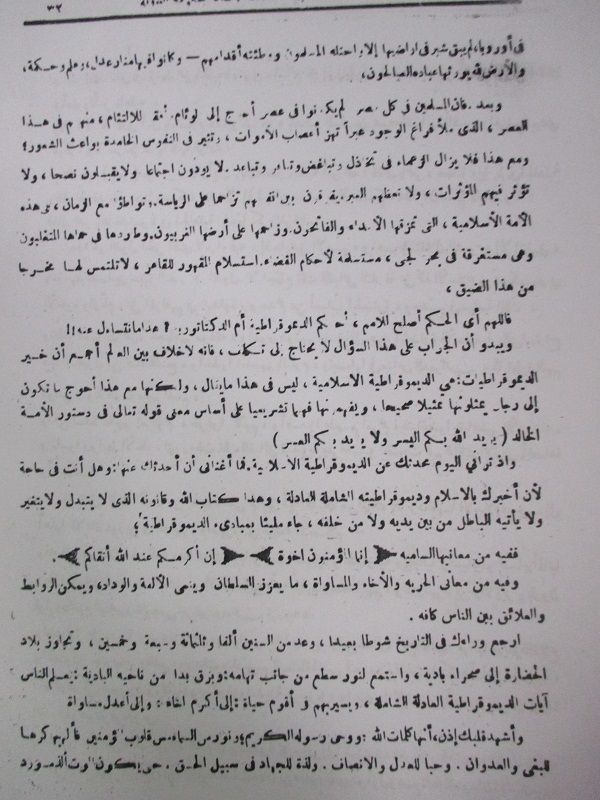 ٣٢
فى أوروبا، لم يبق شبر فى اراضيها إلا واحتله المسلمون ووطئته أقدامهم — وكانوا فيها منار عدل، وعلم وحكمة،
والأرض لله يورثها عباده الصالحون،
وبعد . فان المسلمين فى كل عصر لم يكونوا فى عصر أحوج إلى لوئام للالتئام، منهم فى هذا
العصر، الذى ملأ فراغ الوجود عبراً تهز أعصاب الأموات، وتثير فى النفوس الخامدة بواعث الشعور؟
ومع هذا فلا يزال الزعماء فى تخاذل وتباغض وتنافر وتباعد . لا يودون اجتماعا ولا يقبلون نصحا، ولا
تؤثر فيهم المؤثرات، ولا تعظهم العبر تزاحما على الرياسة. وتواطؤا مع الزمان، على هذه
الأمة الأسلامية، التى تمزقها الأعداء والفاتحون. وزاحمها على أرضها الغربيون. وطاردها فى حماها المتغلبون
وهى مستغرقة فى بحر لجى، مستسلمة لأحكام القضاء. استسلام المقهور للقاهر، لا تلتمس لها مخرجا
من هذا الضيق،
فاللهم أى الحكم أصلح للامم، أحكم الديموقراطية أم الدكتاتورية ؟ هذا ما نتساءل عنه!!
ويبدو أن الجواب على هذا السؤال لا يحتاج إلى تكلف، فانه لا خلاف بين العالم أجمع أن خير
الديموقراطيات: هى الديموقراطية الاسلامية، ليس فى هذا ما يقال، ولكنها مع هذا أحوج ما تكون
إلى رجال يمثلونها تمثيلا صحيحا، ويفهمونها فهما تشريعيا على أساس معنى قوله تعالى فى دستور الأمة
الخالد ( يريد الله بكم اليسر ولا يريد بكم العسر )
واذ ترانى اليوم محدثك عن الديموقراطية الاسلامية. فما أغنانى أن أحدثك عنها: وهل أنت فى حاجة
لأن أخبرك بالاسلام وديموقراطيته الشاملة العادلة، وهذا كتاب الله وقانونه الذى لا يتبدل ولا يتغير
ولا يأتيه الباطل من بين يديه ولا من خلفه، جاء مليئا بمبادىء الديموقراطية؟؛
ففيه من معانيها الساميه إنما المؤمنون اخوة إن أكرمكم عند الله أتقاكم .
وفيه من معانى الحريه والأخاء والمساواة، ما يعزز السلطان وينمى الألفة والوداد، ويمكن الروابط
والعلائق بين الناس كافه .
ارجع وراءك فى التاريخ شوطا بعيدا، وعد من السنين ألفا وثلثمائة وسبعة وخمسين، وتجاوز بلاد
الحضارة إلى صحراء بادية، واستمع لنور سطع من جانب تهامه: وبرق بدا من ناحيه البادية: يعلم الناس
آيات الديموقراطية العادلة الشاملة، ويسير بهم فى أقوم حياة: إلى أكرم اخاء: وإلى أعدل مساواة
وأشهد قلبك إذن، أنها كلمات الله: ووحى رسوله الكريم؛ ونور من السماء مس قلوب المؤمنين فألهمها كرها
للبغى والعدوان. وحبا للعدل والانصاف. ولذة للجهاد فى سبيل الحق. حتى يكون الموت ألذ مورد